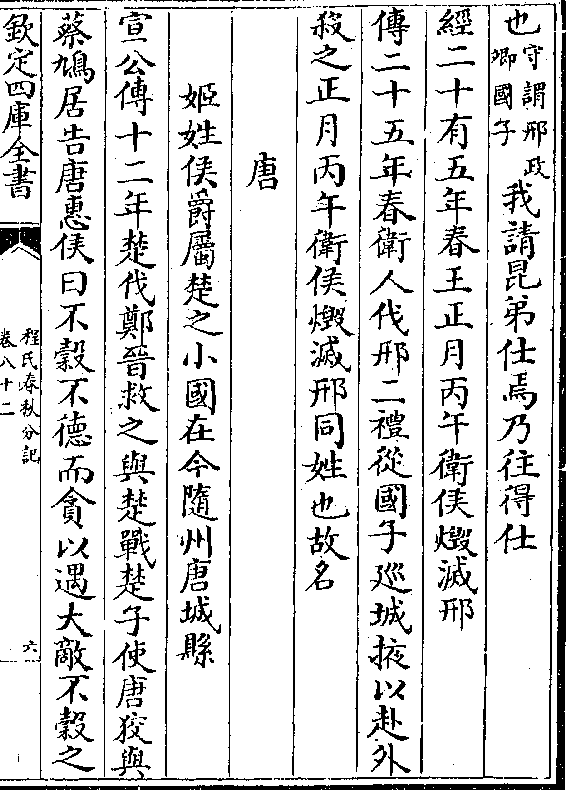 也守謂邢政卿國子我請昆弟仕焉乃往得仕
經二十有五年春王正月丙午衛侯燬滅邢
傳二十五年春衛人伐邢二禮從國子巡城掖以赴外
殺之正月丙午衛侯燬滅邢同姓也故名
唐
姬姓侯爵屬楚之小國在今隨州唐城縣
宣公傳十二年楚伐鄭晉救之與楚戰楚子使唐狡與
蔡鳩居告唐惠侯曰不穀不德而貪以遇大敵不穀之
欽定四庫全書
程氏春秋分記
卷八十二
六